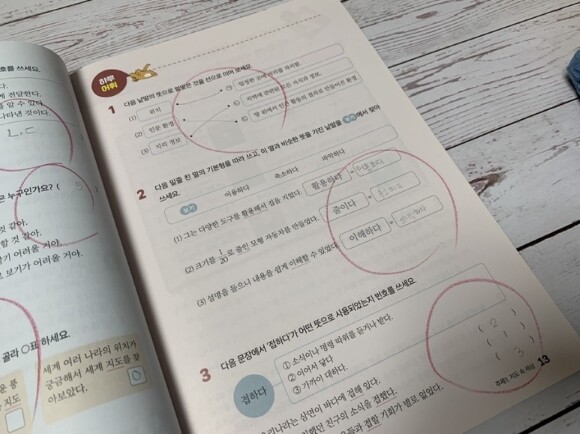 번호를 쓰세요.
전달한다.
알 수 있다
나타낸 것이다.
ㄴ, ㄷ
은 누구인가요? (
것 같아.
할 것 같아.
기 어려울 거야.
보기가 어려울 거야.
골라 ○표 하세요.
세계 여러 나라의 위치가
궁금해서 세계 지도를 찾
아보았다.
하루
어휘
1 다음 낱말의 뜻으로 알맞은 것을 선으로 이어 보세요.
(1) 위치
(2) 인문 환경
(3) 지리 정보
㉠ 일정한 곳에 자리를 차지함.
㉡ 지역에 관련된 모든 지식과 정보.
㉢ 땅 위에서 인간 활동의 결과로 만들어진 환경.
2 다음 밑줄 친 말의 기본형을 따라 쓰고, 이 말과 비슷한 뜻을 가진 낱말을 보기에서 찾아
쓰세요.
보기 이용하다 축소하다 파악하다
(1) 그는 다양한 도구를 활용해서 집을 지었다. 활용하다 = 이용하다
(2) 크기를 1/20로 줄인 모형 자동차를 만들었다. 줄이다 = 축소하다
(3) 설명을 들으니 내용을 쉽게 이해할 수 있었다. 이해하다 = 파악하다
3 다음 문장에서 '접하다'가 어떤 뜻으로 사용되었는지 번호를 쓰세요.
접하다
① 소식이나 명령 따위를 듣거나 받다.
② 이어서 닿다.
③ 가까이 대하다.
우리나라는 삼면이 바다에 접해 있다. ( 2 )
친구의 소식을 접했다. ( 1 )
접할 기회가 별로 없었다. ( 3 )
13